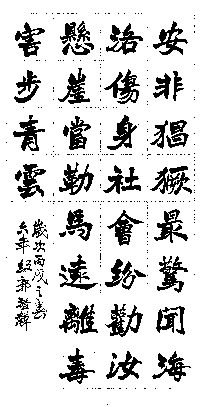 安非猖獗最驚聞海
洛傷身社會紛勸汝
懸崖當勒馬遠離毒
害步青雲
歲次丙戌之春